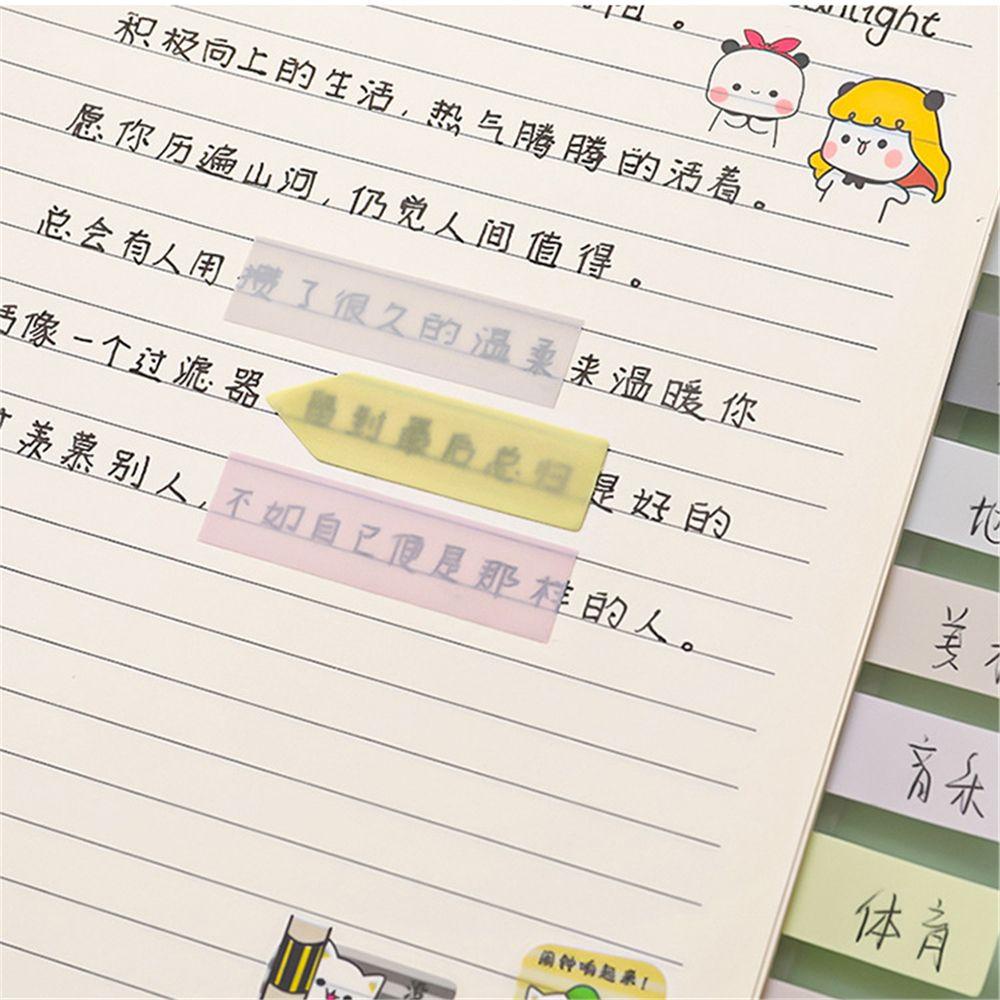 light
积极向上的生活，热气腾腾的活着。
愿你历遍山河，仍觉人间值得。
总会有人用攒了很久的温柔来温暖你
活像一个过滤器 留到最后总归是好的
羡慕别人，不如自己便是那样的人。
地
美
音乐
体育
闹钟响起来！
没